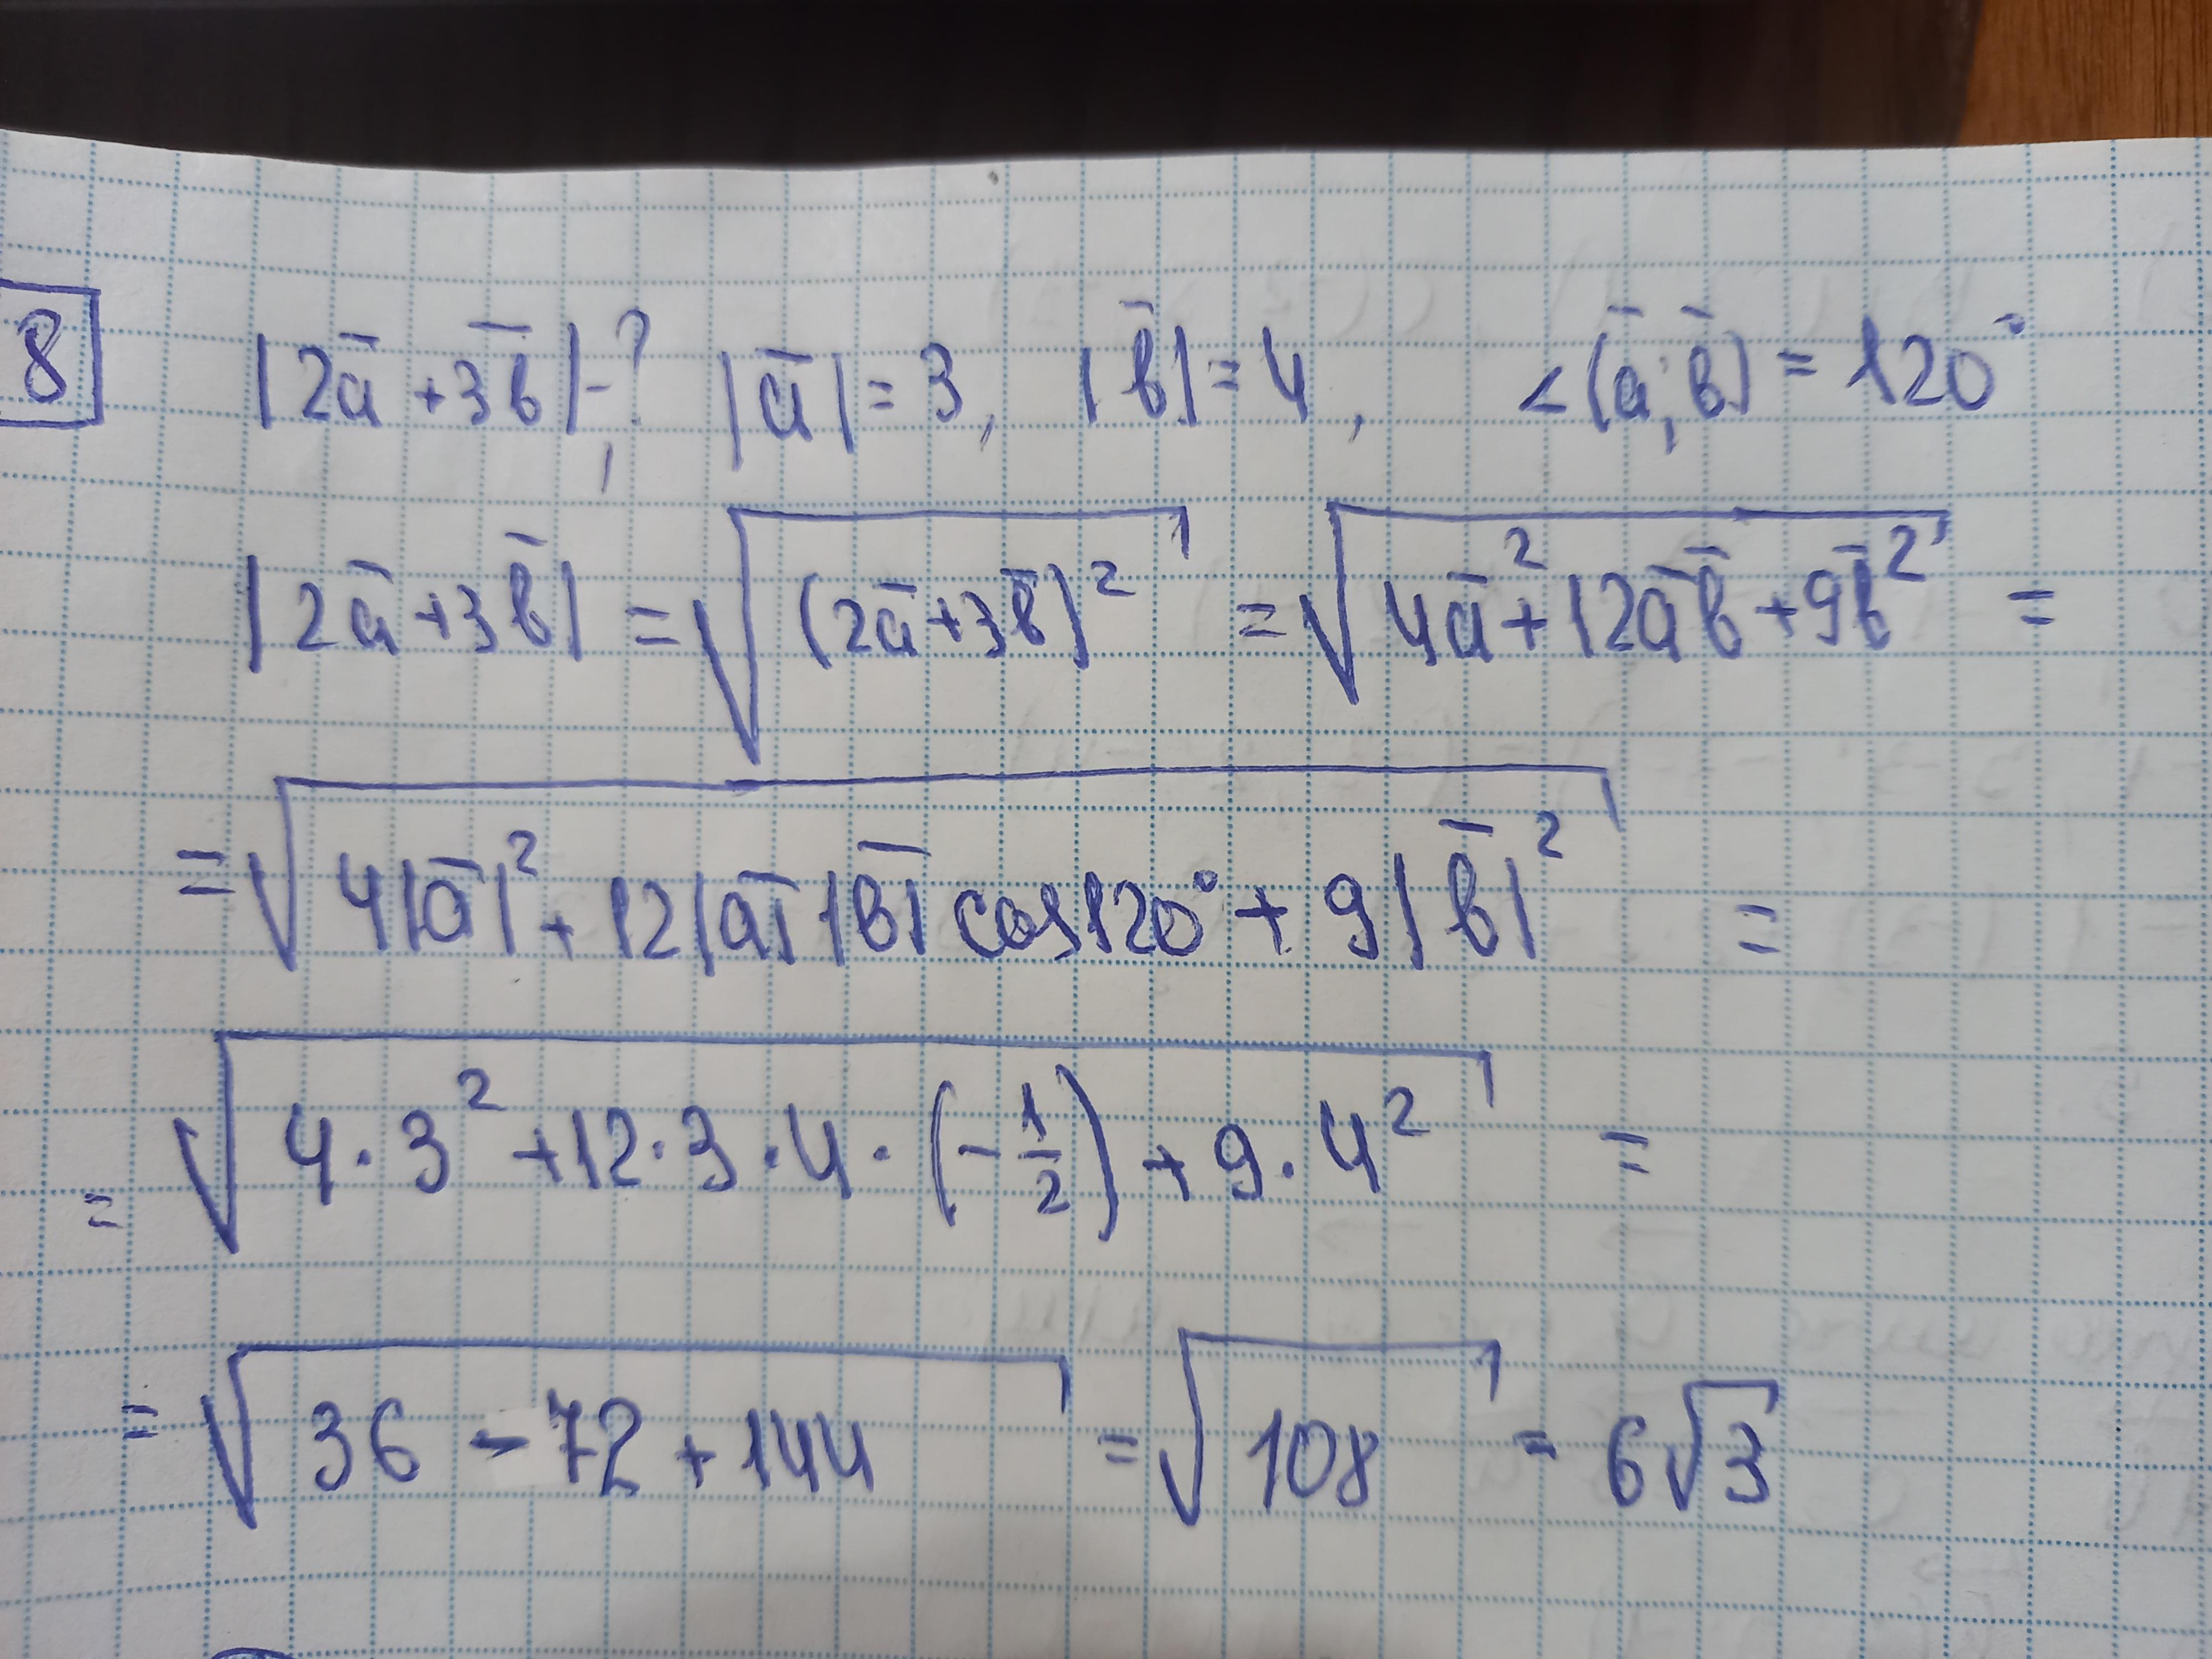 8 |2a̅+3b̅|-? , |a̅|=3, |b̅|=4, <(a̅;b̅)=120°
|2a̅+3b̅| = √(2a̅+3b̅)² = √4a̅²+12a̅b̅+9b̅² =
= √4|a̅|²+12|a̅||b̅|cos120°+9|b̅|² =
= √4·3²+12·3·4·(-1/2)+9·4² =
= √36-72+144 = √108 = 6√3